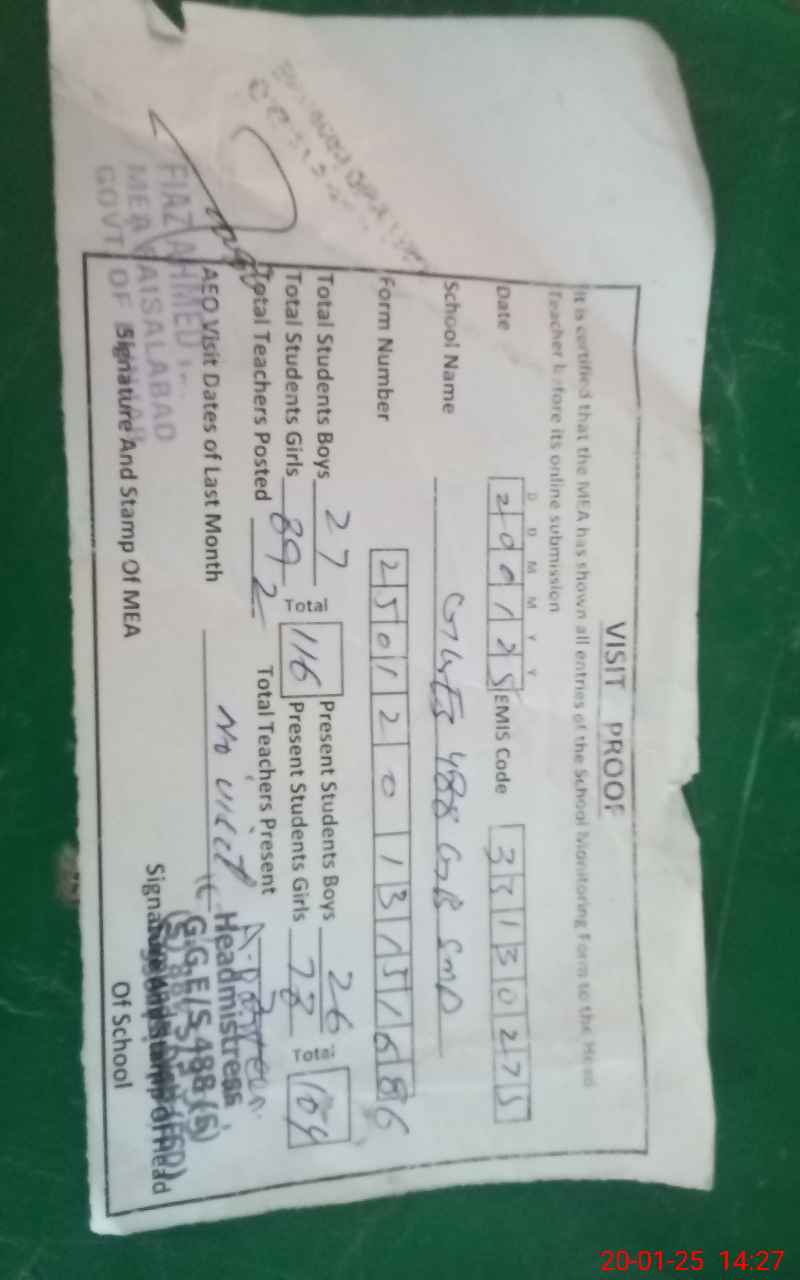 VISIT PROOF
It is certified that the MEA has shown all entries of the School Monitoring Form to the Head
Teacher before its online submission
D D M M Y Y
Date 200125 EMIS Code 33130275
School Name GGES 488 GB SMD
Form Number
Total Students Boys 27 Present Students Boys 26
Total Students Girls 89 Total 116 Present Students Girls 78 Total 104
Total Teachers Posted 2 Total Teachers Present
AEO Visit Dates of Last Month No visit
Headmistress
G.G.E/S 488 (G)
FIAZ AHMED
MEA FAISALABAD
GOVT OF
Signature And Stamp Of MEA
Signature And Stamp Of Head
Of School
20-01-25 14:27